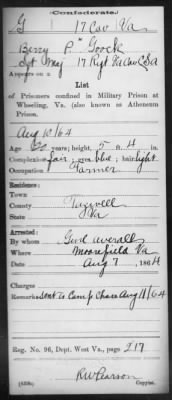 (Confederate.)
G 17 Cav Va
Berry P Goock
Sgt Maj 17 Regt Va Cav CSA
Appears on a
List
of Prisoners confined in Military Prison at
Wheeling, Va. (also known as Atheneum
Prison.
Aug 10/64
Age years; height, 5 ft. 4 in.
Complexion fair; eyes blue; hair light
Occupation Farmer
Residence:
Town
County Tazwell
State Va
Arrested:
By whom Genl Averall
Where Moorefield Va
Date Aug 7, 1864
Charges
Remarks: Sent to Camp Chase Aug 11/64
Reg. No. 96, Dept. West Va., page 217
RW Pearson
Copyist.